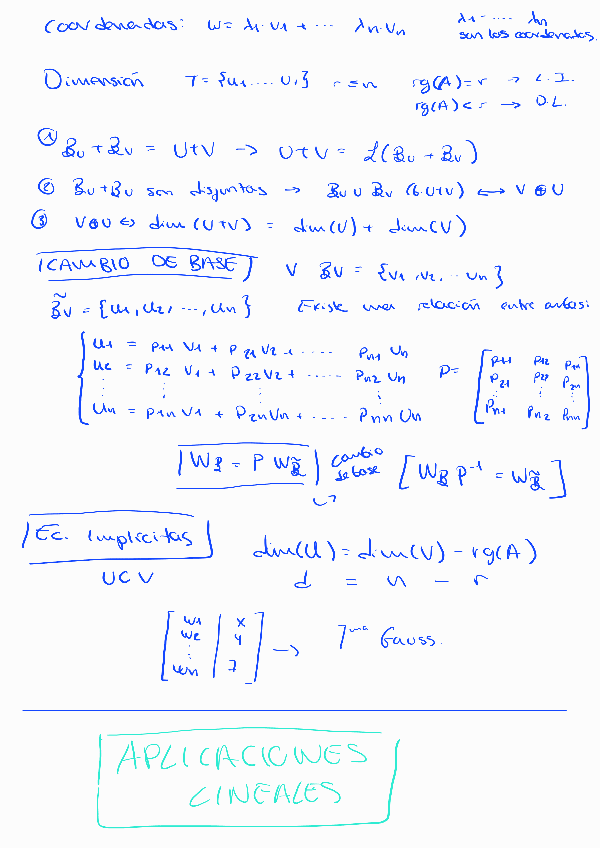 Coordenadas: w = λ1·v1 + ... λn·vn    λ1 ..... λn
son las coordenadas.
Dimensión    T = {u1 .... ur}    r ≤ n    rg(A) = r → L.I.
rg(A) < r → D.L.
① Bu + Bv = U+V → U+V = L(Bu + Bv)
② Bu + Bv son disjuntas → Bu ∪ Bv (b. U+V) ⟷ V ⊕ U
③ V⊕U ⇔ dim (U+V) = dim(U) + dim(V)
CAMBIO DE BASE    V    Bv = {v1, v2, ... vn}
B̃v = {u1, u2, ..., un}    Existe una relación entre ambas:
u1 = p11 v1 + p21 v2 + ..... pn1 vn
u2 = p12 v1 + p22 v2 + ..... pn2 vn
un = p1n v1 + p2n vn + ..... pnn vn
P = [p11 p12 p1n
p21 p22 p2n
pn1 pn2 pnn]
W_B = P W_B̃    cambio de base    [W_B P⁻¹ = W_B̃]
Ec. Implícitas    dim(U) = dim(V) − rg(A)
U⊂V    d = n − r
[w1 | x
w2 | y
⋮
wn | z] →    Tma Gauss.
APLICACIONES
LINEALES